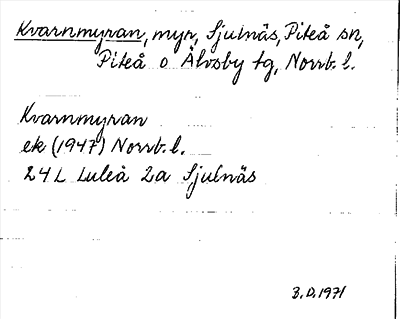 Kvarnmyran, myr, Sjulnäs, Piteå sn,
Piteå o Älvsby tg, Norrb. l.
Kvarnmyran
ek (1947) Norrb. l.
24 L Luleå 2a Sjulnäs
B.D. 1971